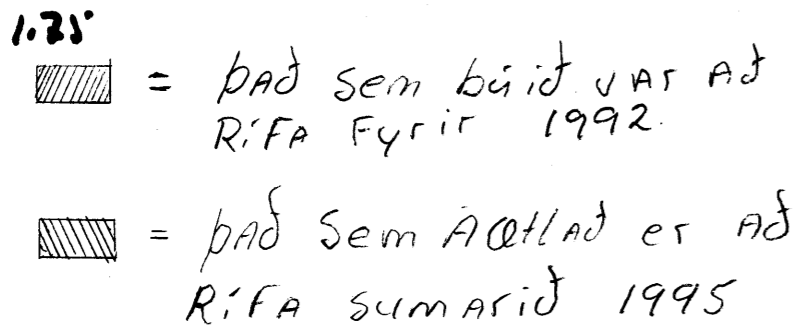 1.75
= það sem búið var að
Rífa Fyrir 1992.
= það sem Áætlað er að
Rífa sumarið 1995